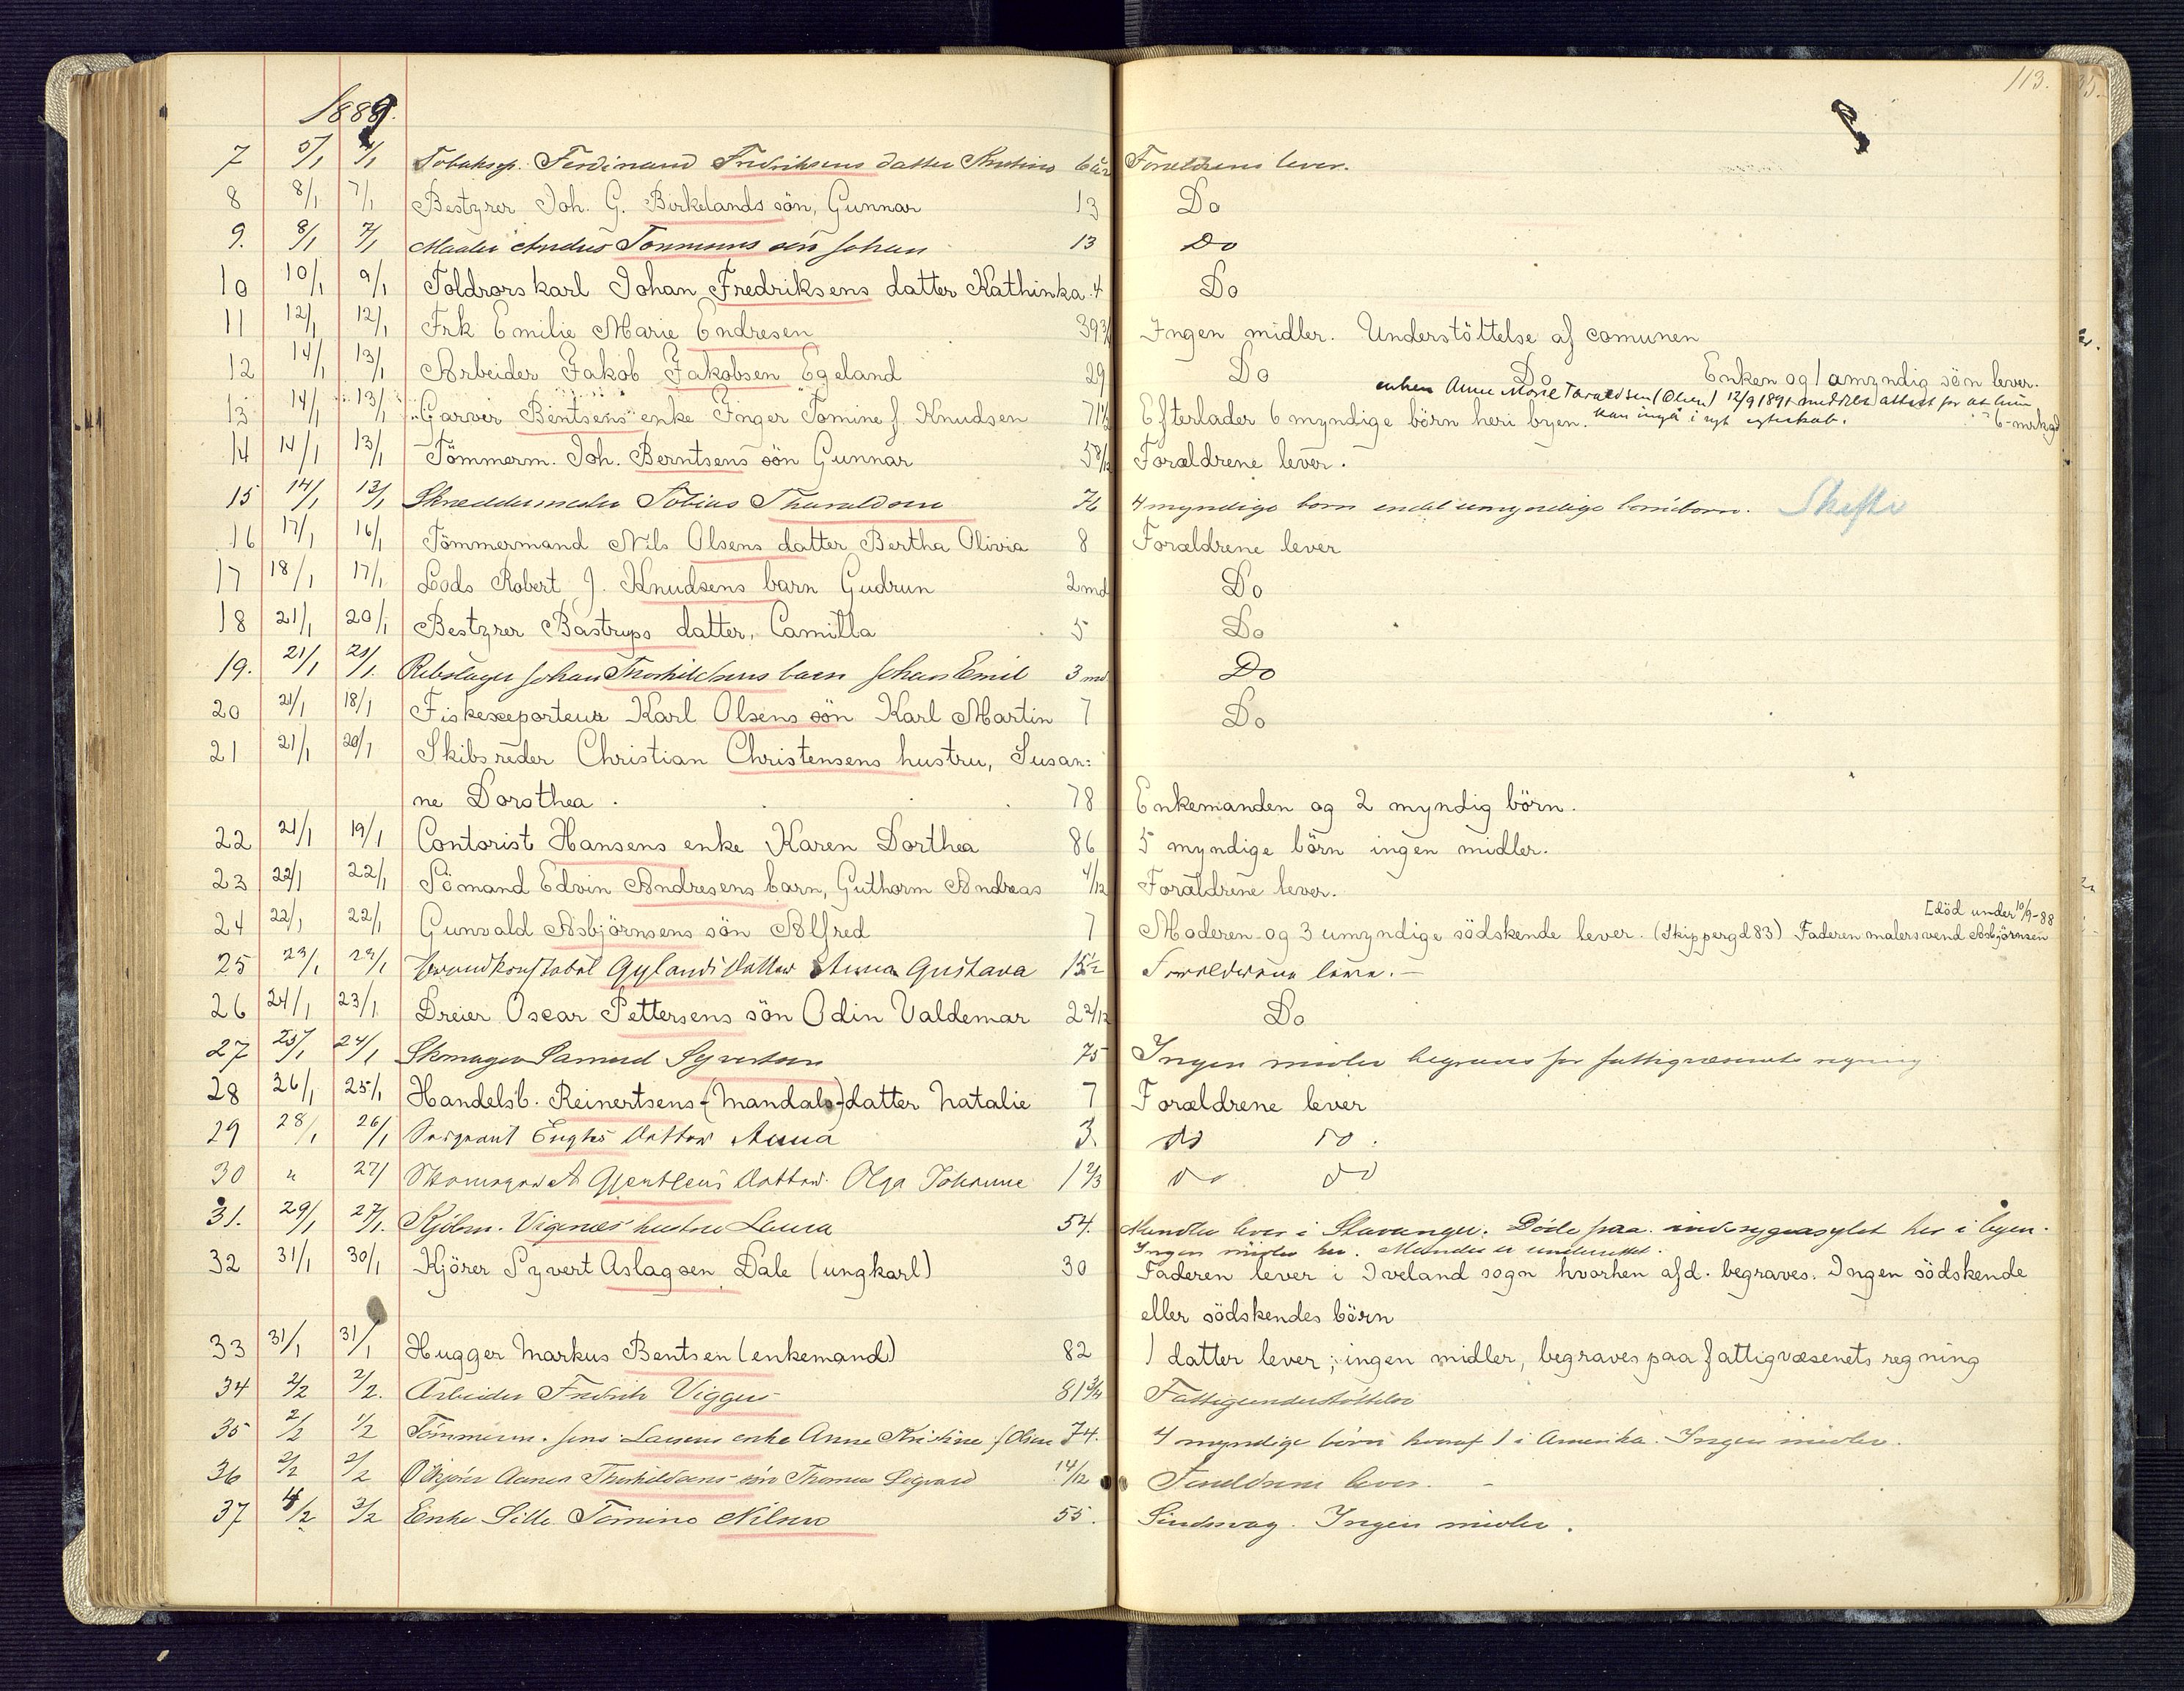 113.
1889.
7 5/1 4/1 Tobaksp. Ferdinand Fredriksens datter Kristine 6 år Forældrene lever.
8 8/1 7/1 Bestyrer Joh. G. Birkelands sön, Gunnar 13 Do
9. 8/1 7/1 Maaler Andres Tönnesens sön Johan 13 Do
10 10/1 9/1 Toldrorskarl Johan Fredriksens datter Kathinka 4 Do
11 12/1 12/1 Frk Emilie Marie Endresen 39 3/4 Ingen midler. Understöttelse af comunen
12 14/1 13/1 Arbeider Jakob Jakobsen Egeland 29 Do Do Enken og 1 umyndig sön lever.
enken Anne Marie Taraldsen (Olsen) 12/9 1891 meddelt attest for at hun
kan ingå i nyt egteskab.
13 14/1 13/1 Garver Bentsens enke Inger Tomine f. Knudsen 71 1/2 Efterlader 6 myndige börn heri byen.
14 14/1 13/1 Tömmerm. Joh. Berntsens sön Gunnar 5 8/12 Forældrene lever.
15 14/1 13/1 Skræddermester Tobias Tharaldsen 76 4 myndige börn endel umyndige börnebörn. Skifte
16 17/1 16/1 Tömmermand Nils Olsens datter Bertha Olivia 8 Forældrene lever
17 18/1 17/1 Lods Robert J. Knudsens barn Gudrun 2 md Do
18 21/1 20/1 Bestyrer Bastrups datter, Camilla 5 Do
19. 21/1 21/1. Rebslager Johan Thorkildsens barn Johan Emil 3 md. Do
20 21/1 18/1 Fiskeexporteur Karl Olsens sön Karl Martin 7 Do
21 21/1 20/1 Skibsreder Christian Christensens hustru, Susan:
ne Dorothea. 78 Enkemanden og 2 myndig börn.
22 21/1 19/1 Contorist Hansens enke Karen Dorthea 86 5 myndige börn ingen midler.
23 22/1 22/1 Sömand Edvin Andresens barn, Guthorm Andreas 4/12 Forældrene lever.
[död under 10/9-88
24 22/1 22/1 Gunvald Asbjörnsens sön Alfred 7 Moderen og 3 umyndige södskende lever. (Skippergd 83) Faderen malersvend Asbjörnsen
25 23/1 23/1 Brandkonstabel Gylands datter Anna Gustava 15 1/2 Forældrene lever.
26 24/1 23/1 Dreier Oscar Pettersens sön Odin Valdemar 2 2/12 Do
27 25/1 24/1 Skomager Samuel Syvertsen 75 Ingen midler begraves for fattigvæsenets regning
28 26/1 25/1 Handelsb. Reinertsens (Mandals) datter Natalie 7 Forældrene lever
29 28/1 26/1 Sergeant Enghs datter Anna 3. do do.
30 " 27/1 Skomager A Gjentlens datter Olga Johanne 1 2/3 do do
31. 29/1 27/1. Kjöbm. Vigenæs hustru Laura 54. Manden lever i Stavanger. Döde paa sindssygeasylet her i byen.
Ingen midler her. Manden er underrettet.
32 31/1 30/1 Kjörer Syvert Aslagsen Dale (ungkarl) 30 Faderen lever i Iveland sogn hvorhen afd. begraves. Ingen södskende
eller södskendes börn
33 31/1 31/1 Hugger Markus Bentsen (enkemand) 82 1 datter lever; ingen midler, begraves paa fattigvæsenets regning
34 2/2 2/2. Arbeider Fredrik Vigger 81 3/4 Fattigunderstöttelse
35 2/2 1/2 Tömmerm. Jens Larsens enke Anne Kristine f Olsen 74. 4 myndige börn hvoraf 1 i Amerika. Ingen midler.
36 2/2 2/2 Thorkildsens sön Thomas Sigvard 14/12 Forældrene lever.
37 4/2 3/2 Enke Sille Tomine Nilsen 55. Sindssvag. Ingen midler.